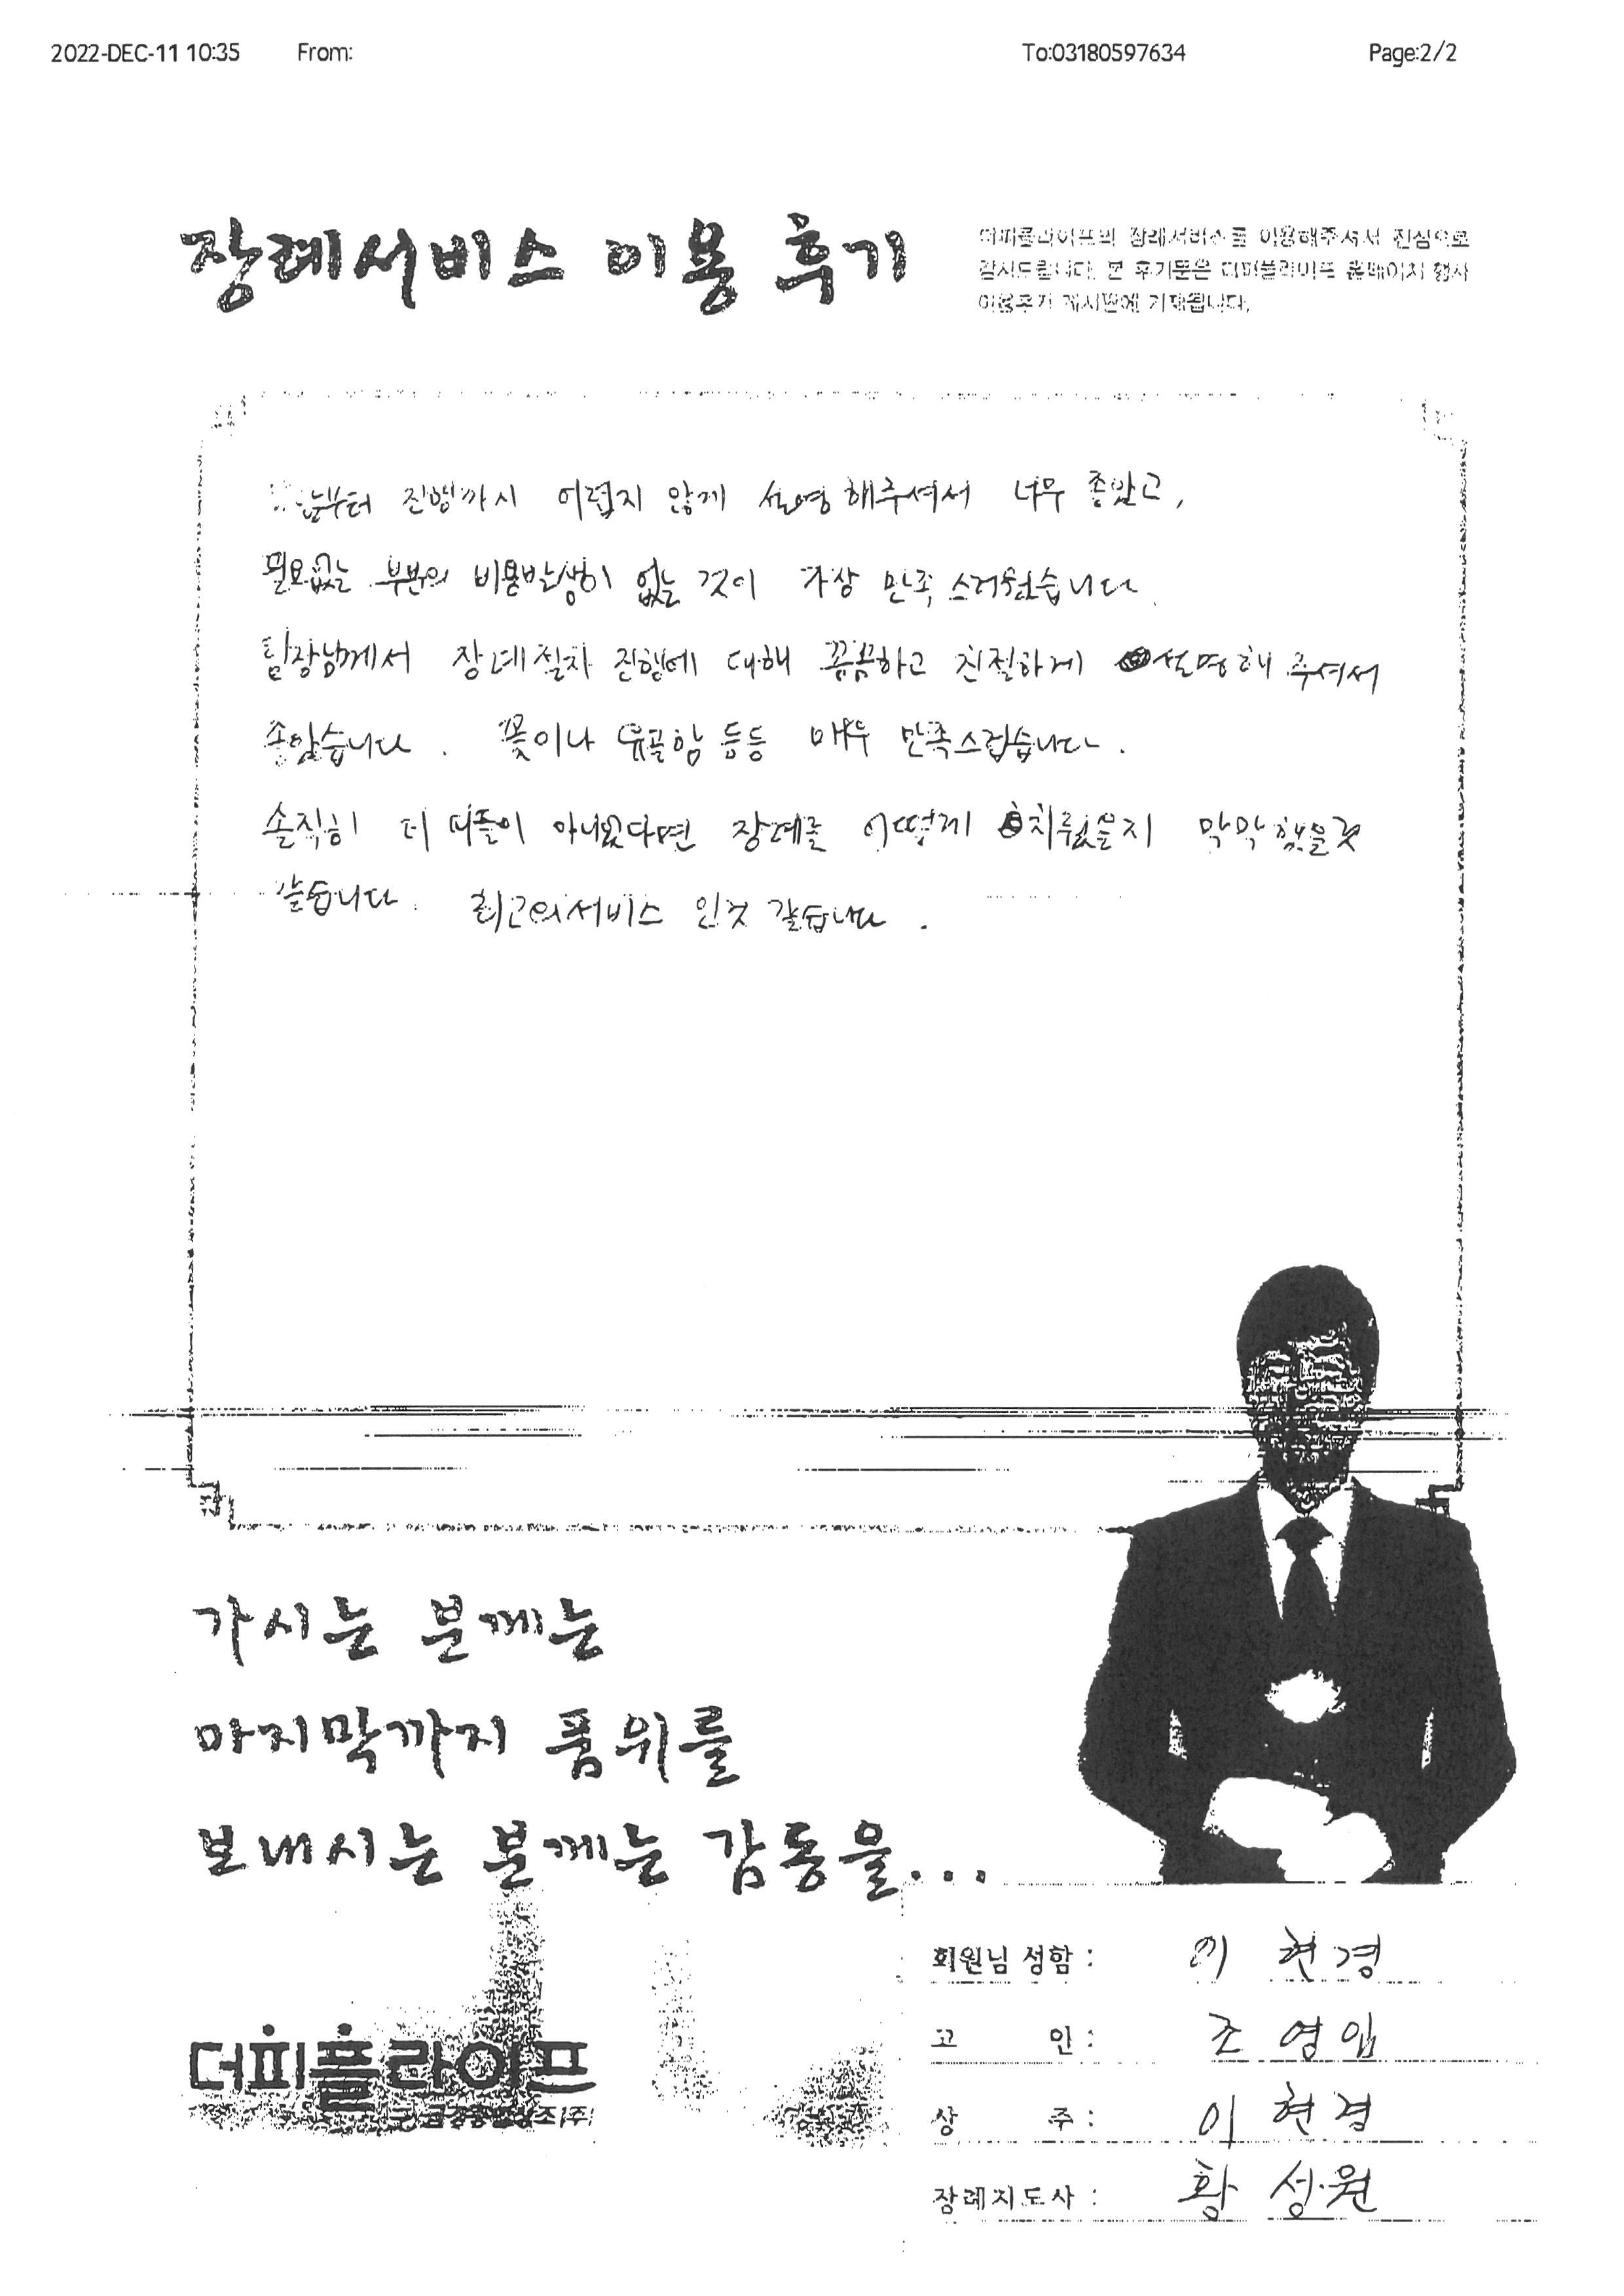 2022-DEC-11 10:35 From: To:03180597634 Page:2/2
장례서비스 이용 후기
더피플라이프의 장례서비스를 이용해주셔서 진심으로
감사드립니다. 본 후기문은 더피플라이프 홈페이지 행사
이용후기 게시판에 기재됩니다.
진행까지 어렵지 않게 설명해주셔서 너무 좋았고,
필요없는 부분의 비용발생이 없는 것이 가장 만족스러웠습니다.
팀장님께서 장례절차 진행에 대해 꼼꼼하고 친절하게 설명해 주셔서
좋았습니다. 꽃이나 유골함 등등 매우 만족스럽습니다.
솔직히 더피플이 아니었다면 장례를 어떻게 치뤘을지 막막했을것
같습니다. 최고의서비스 인것 같습니다.
가시는 분께는
마지막까지 품위를
보내시는 분께는 감동을...
회원님 성함 : 이 현경
고 인 : 조 영임
더피플라이프
상 주 : 이 현경
장례지도사 : 황 성원